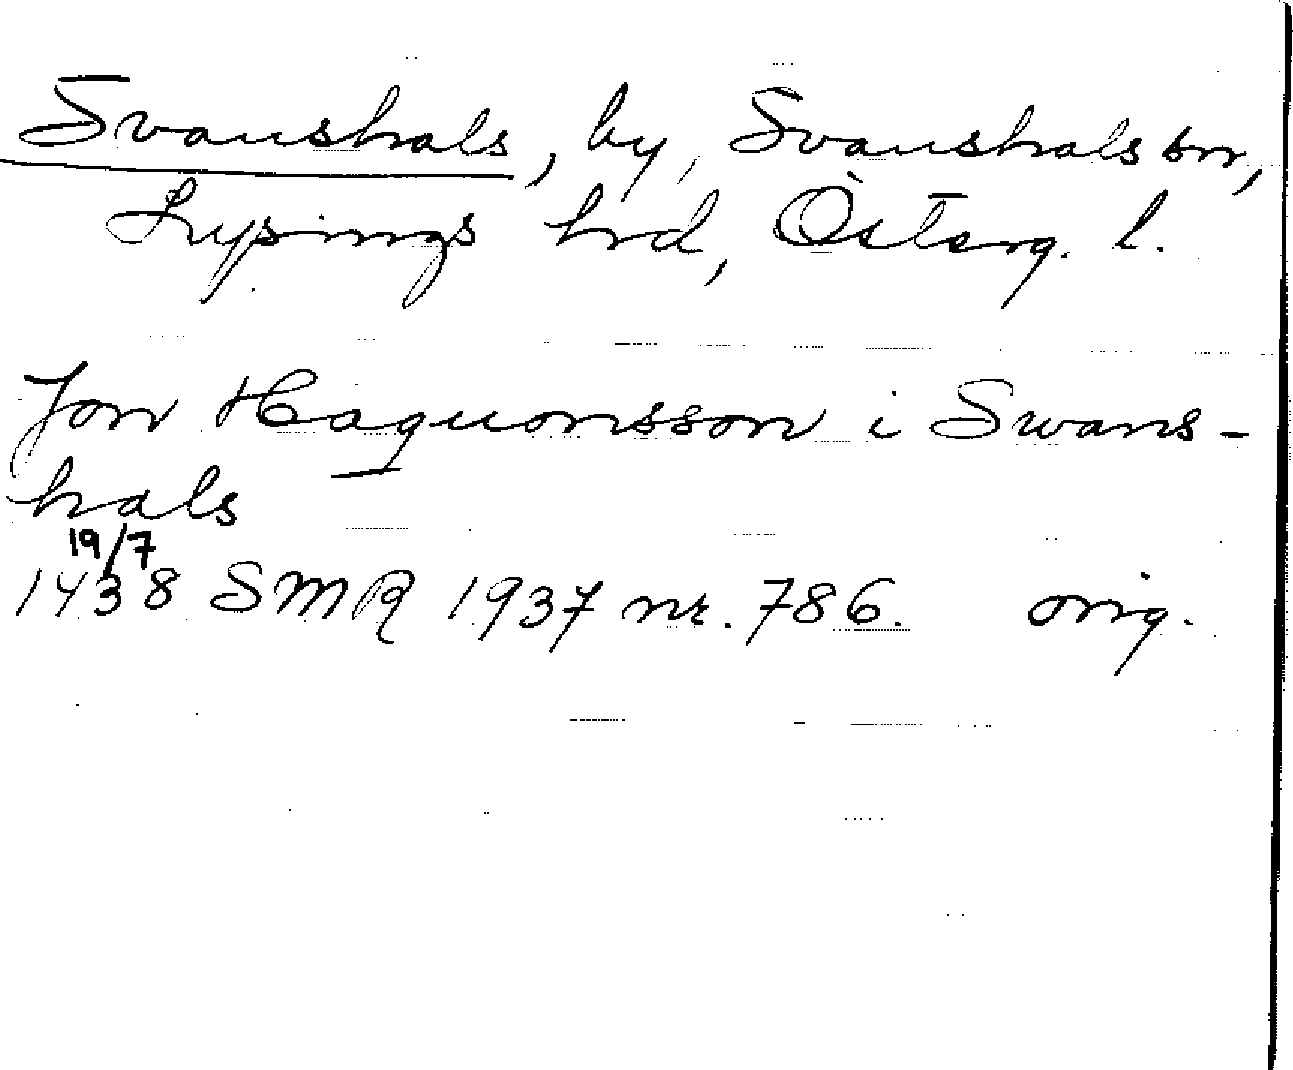 Svanshals, by, Svanshals sn,
Lysings hrd, Österg. l.
Jon Haquonsson i Swans-
hals
19/7
1438 SMR 1937 nr. 786. orig.